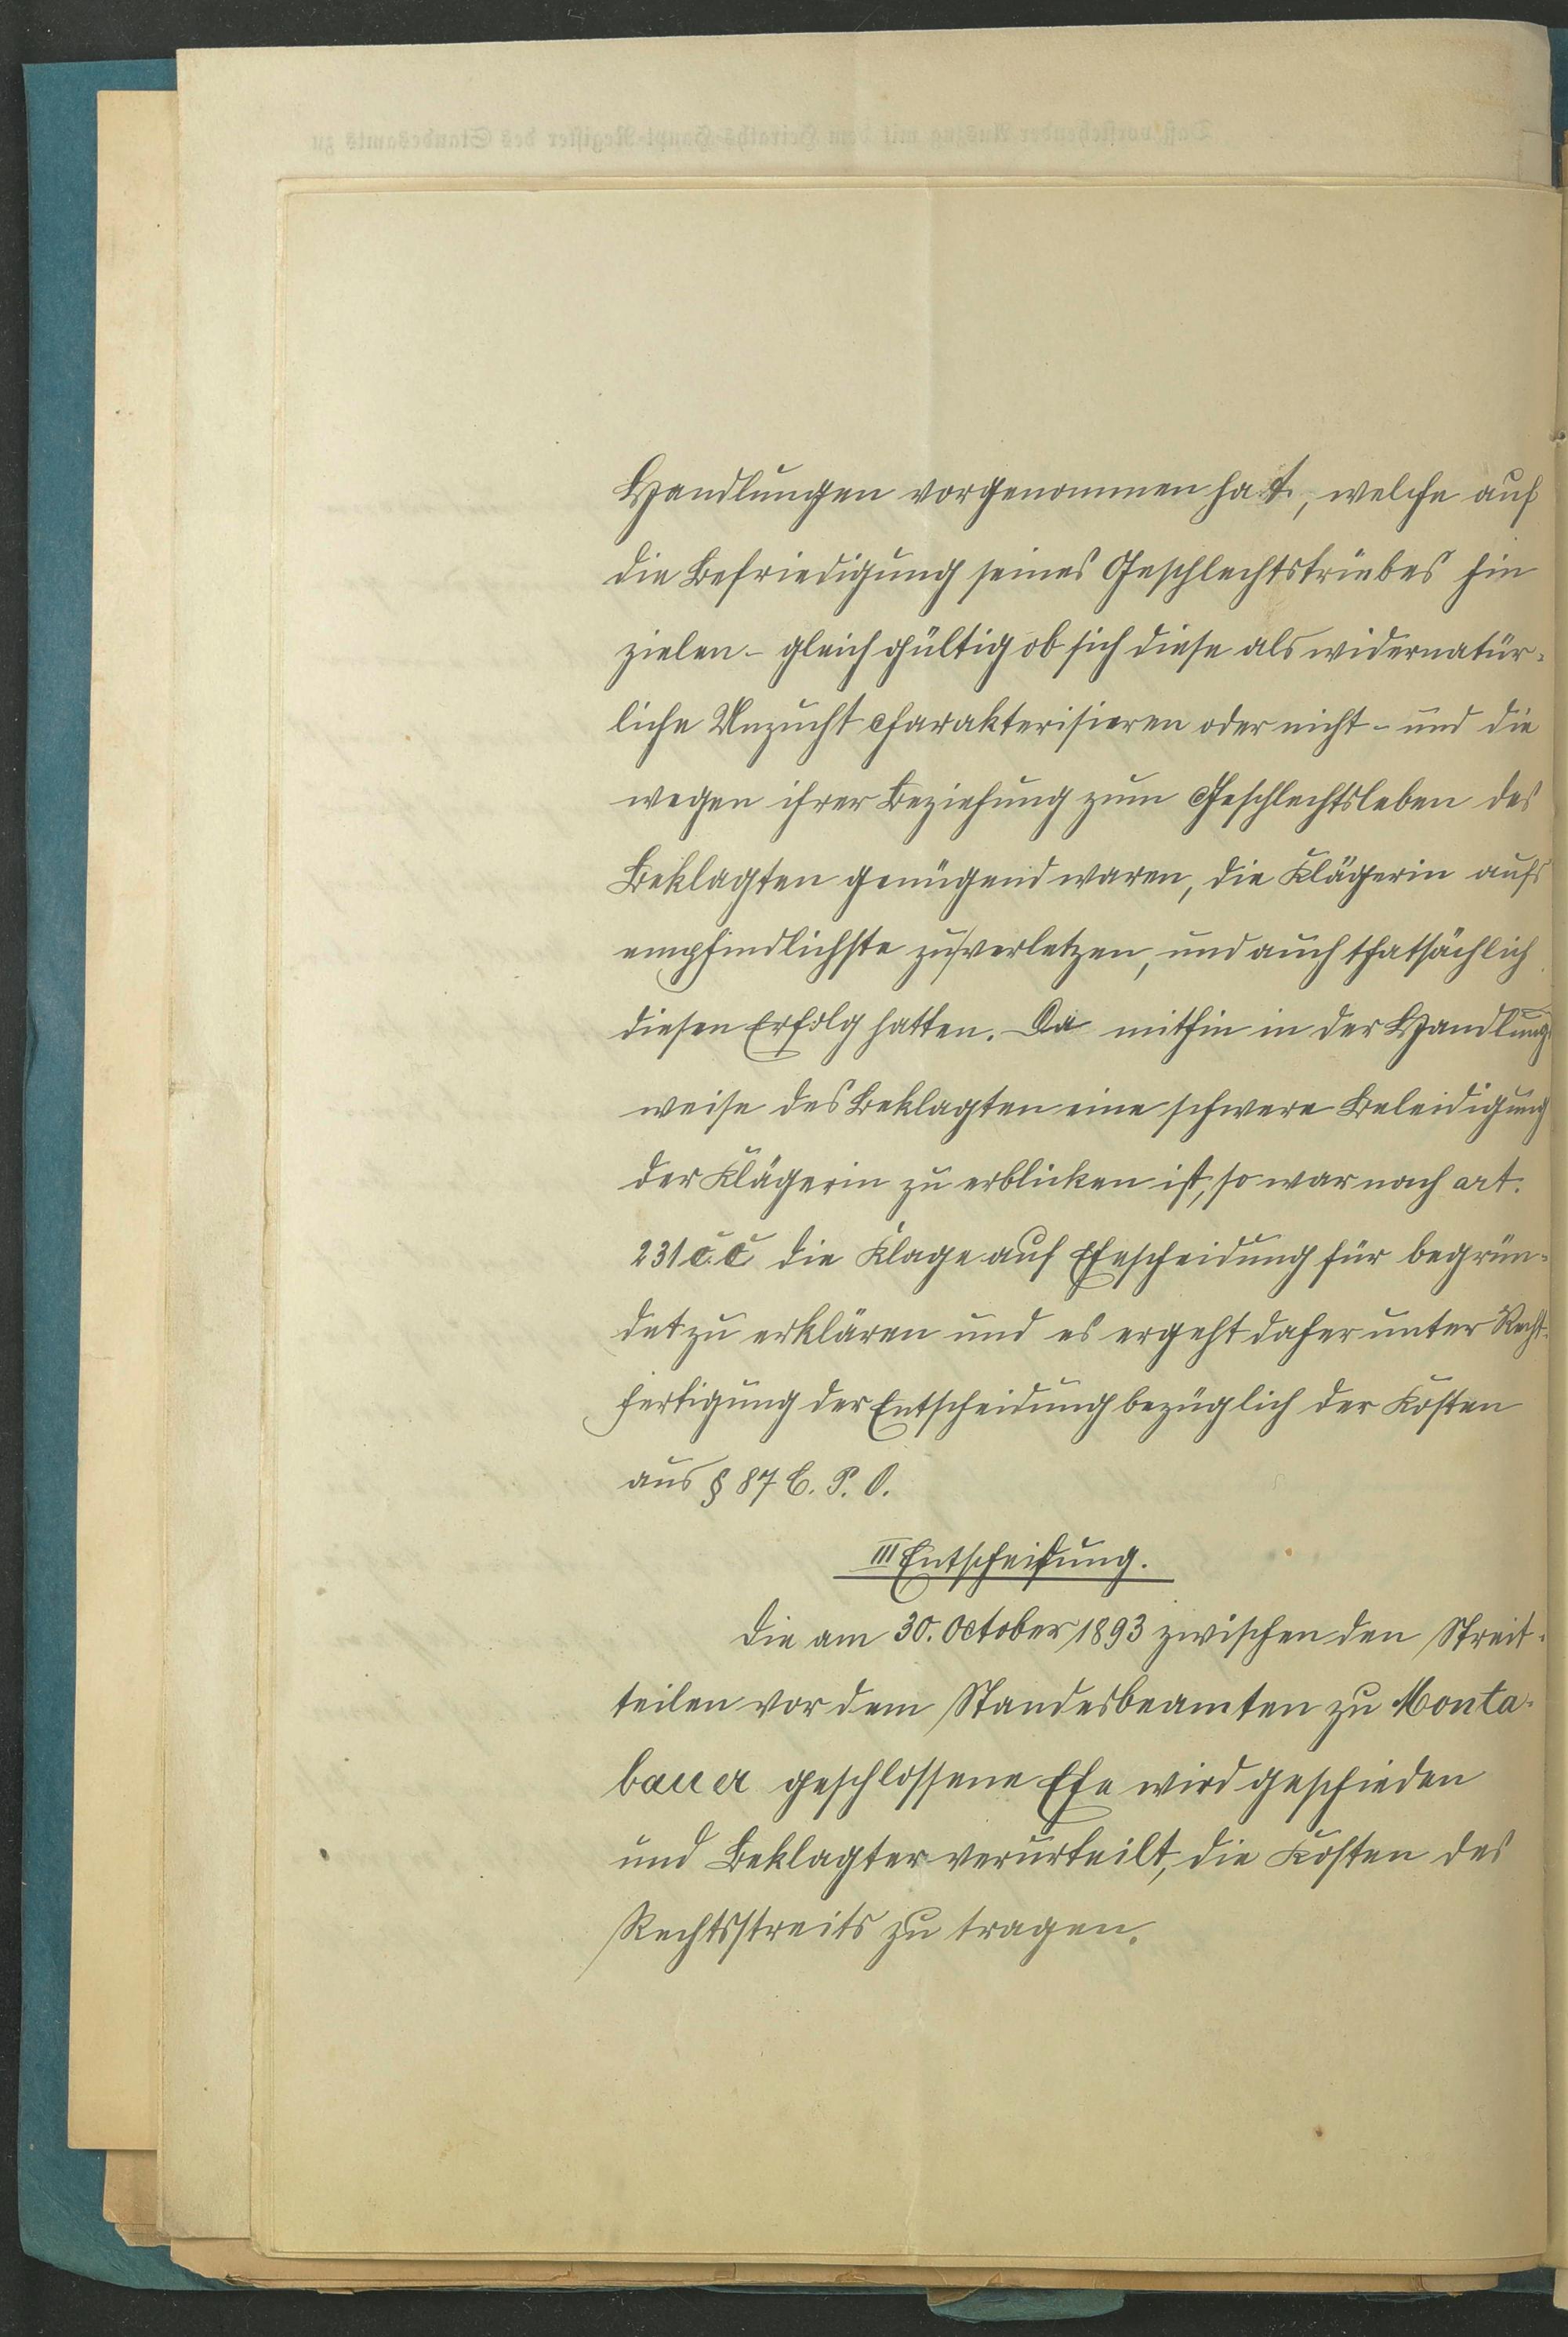 Daß vorstehender Auszug mit dem Heiraths-Haupt-Register des Standesamts zu
Handlungen vorgenommen hat, welche auf
die Befriedigung seines Geschlechtstriebes hin
zielen - gleichgültig ob sich diese als widernatür-
liche Unzucht charakterisieren oder nicht - und die
wegen ihrer Beziehung zum Geschlechtsleben des
Beklagten genügend waren, die Klägerin aufs
empfindlichste zu verletzen, und auch thatsächlich
diesen Erfolg hatten. Da mithin in der Handlungs
weise des Beklagten eine schwere Beleidigung
der Klägerin zu erblicken ist, so war nach art.
231 c. c. die Klage auf Ehescheidung für begrün-
det zu erklären und es ergeht daher unter Recht-
fertigung der Entscheidung bezüglich der Kosten
aus § 87 C. P. O.
III Entscheidung.
Die am 30. October 1893 zwischen den Streit-
teilen vor dem Standesbeamten zu Monta-
bauer geschlossene Ehe wird geschieden
und Beklagter verurteilt, die Kosten des
Rechtsstreits zu tragen.